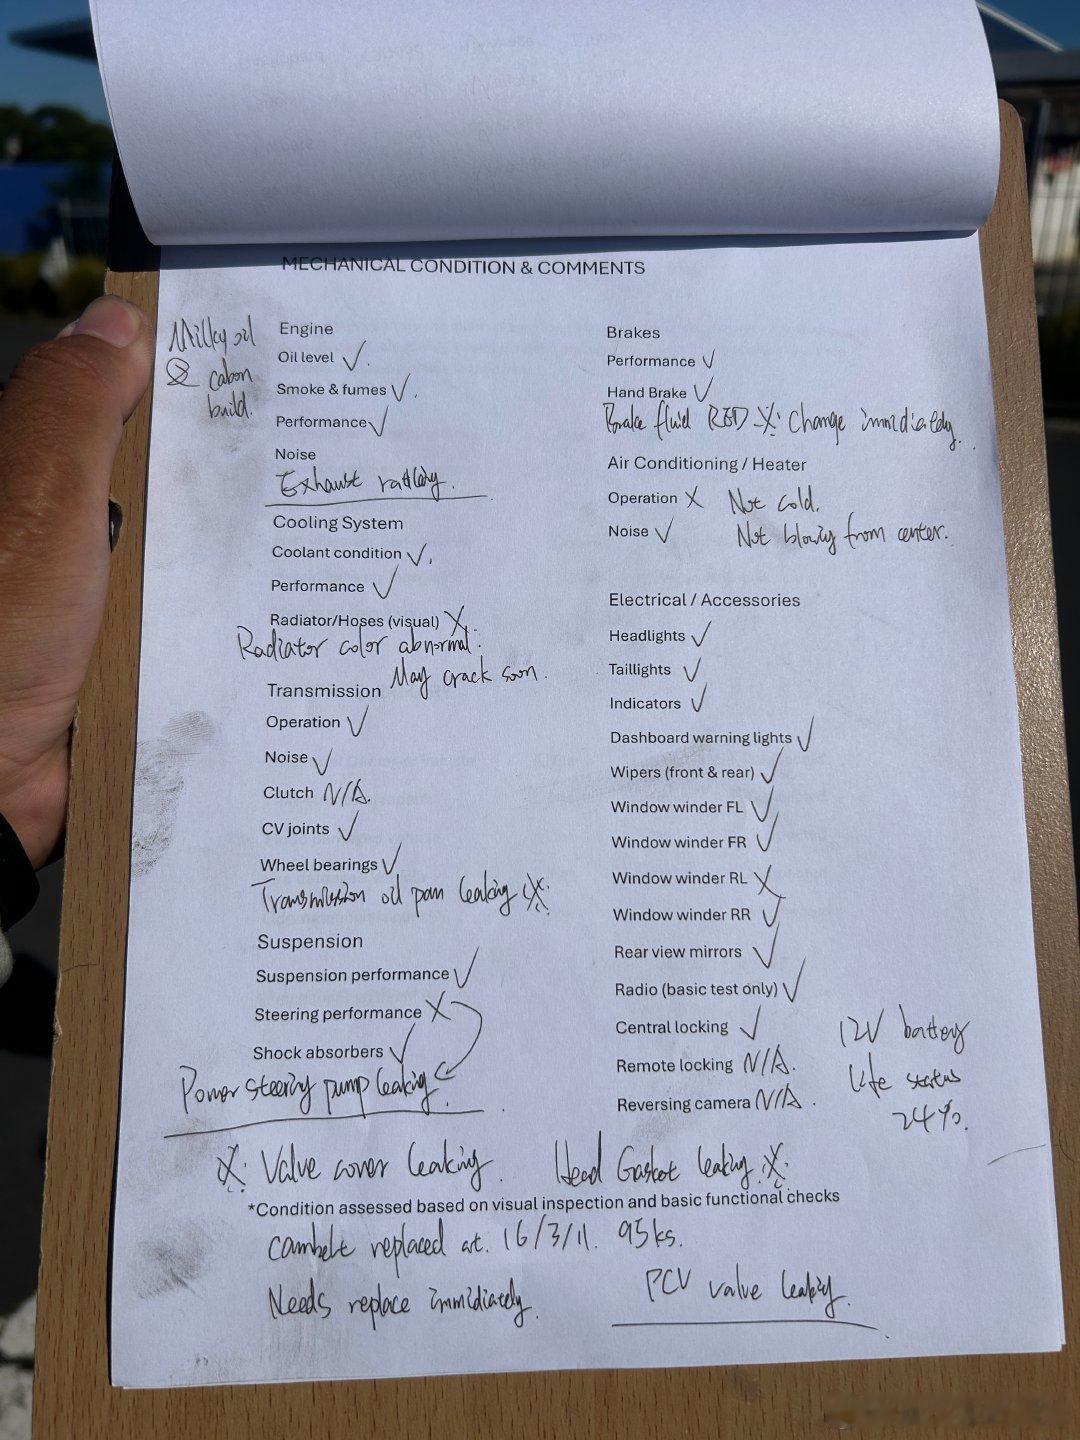 MECHANICAL CONDITION & COMMENTS
Milky oil
& cabon
build.
Engine
Oil level ✓.
Smoke & fumes ✓.
Performance ✓
Noise
Exhaust rattling.
Cooling System
Coolant condition ✓.
Performance ✓
Radiator/Hoses (visual) X
Radiator color abnormal.
May crack soon.
Transmission
Operation ✓
Noise ✓
Clutch N/A.
CV joints ✓
Wheel bearings ✓
Transmission oil pan leaking X
Suspension
Suspension performance ✓
Steering performance X
Shock absorbers ✓
Power steering pump leaking.
Brakes
Performance ✓
Hand Brake ✓
Brake fluid RED X Change immidiately.
Air Conditioning / Heater
Operation X Not cold.
Noise ✓ Not blowing from center.
Electrical / Accessories
Headlights ✓
Taillights ✓
Indicators ✓
Dashboard warning lights ✓
Wipers (front & rear) ✓
Window winder FL ✓
Window winder FR ✓
Window winder RL X
Window winder RR ✓
Rear view mirrors ✓
Radio (basic test only) ✓
Central locking ✓
Remote locking N/A.
Reversing camera N/A.
12V battery
life status
24%.
X Valve cover leaking. Head Gasket leaking X
*Condition assessed based on visual inspection and basic functional checks
cambelt replaced at. 16/3/11. 95ks.
Needs replace immidiately.
PCV valve leaking.